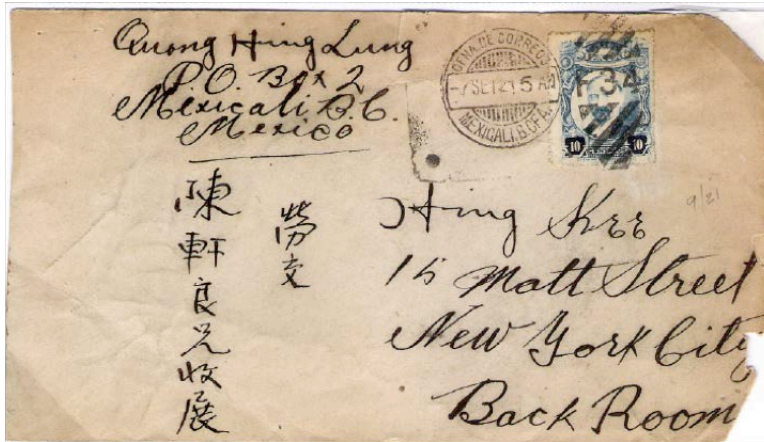 Quong Hing Lung
P.O. Box 2
Mexicali B.C.
Mexico
OFNA DE CORREOS
-7 SET 21 5 AM
MEXICALI. B. CFA.
34
10 10
9/21
勞交
陳軒良兄收展
Hing Kee
15 Matt Street
New York City
Back Room